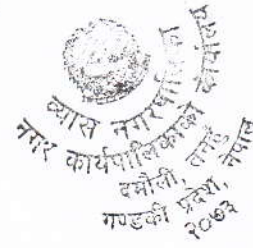 व्यास नगरपालिका
नगर कार्यपालिकाको कार्यालय
दमौली, तनहुँ
गण्डकी प्रदेश, नेपाल
२०७३